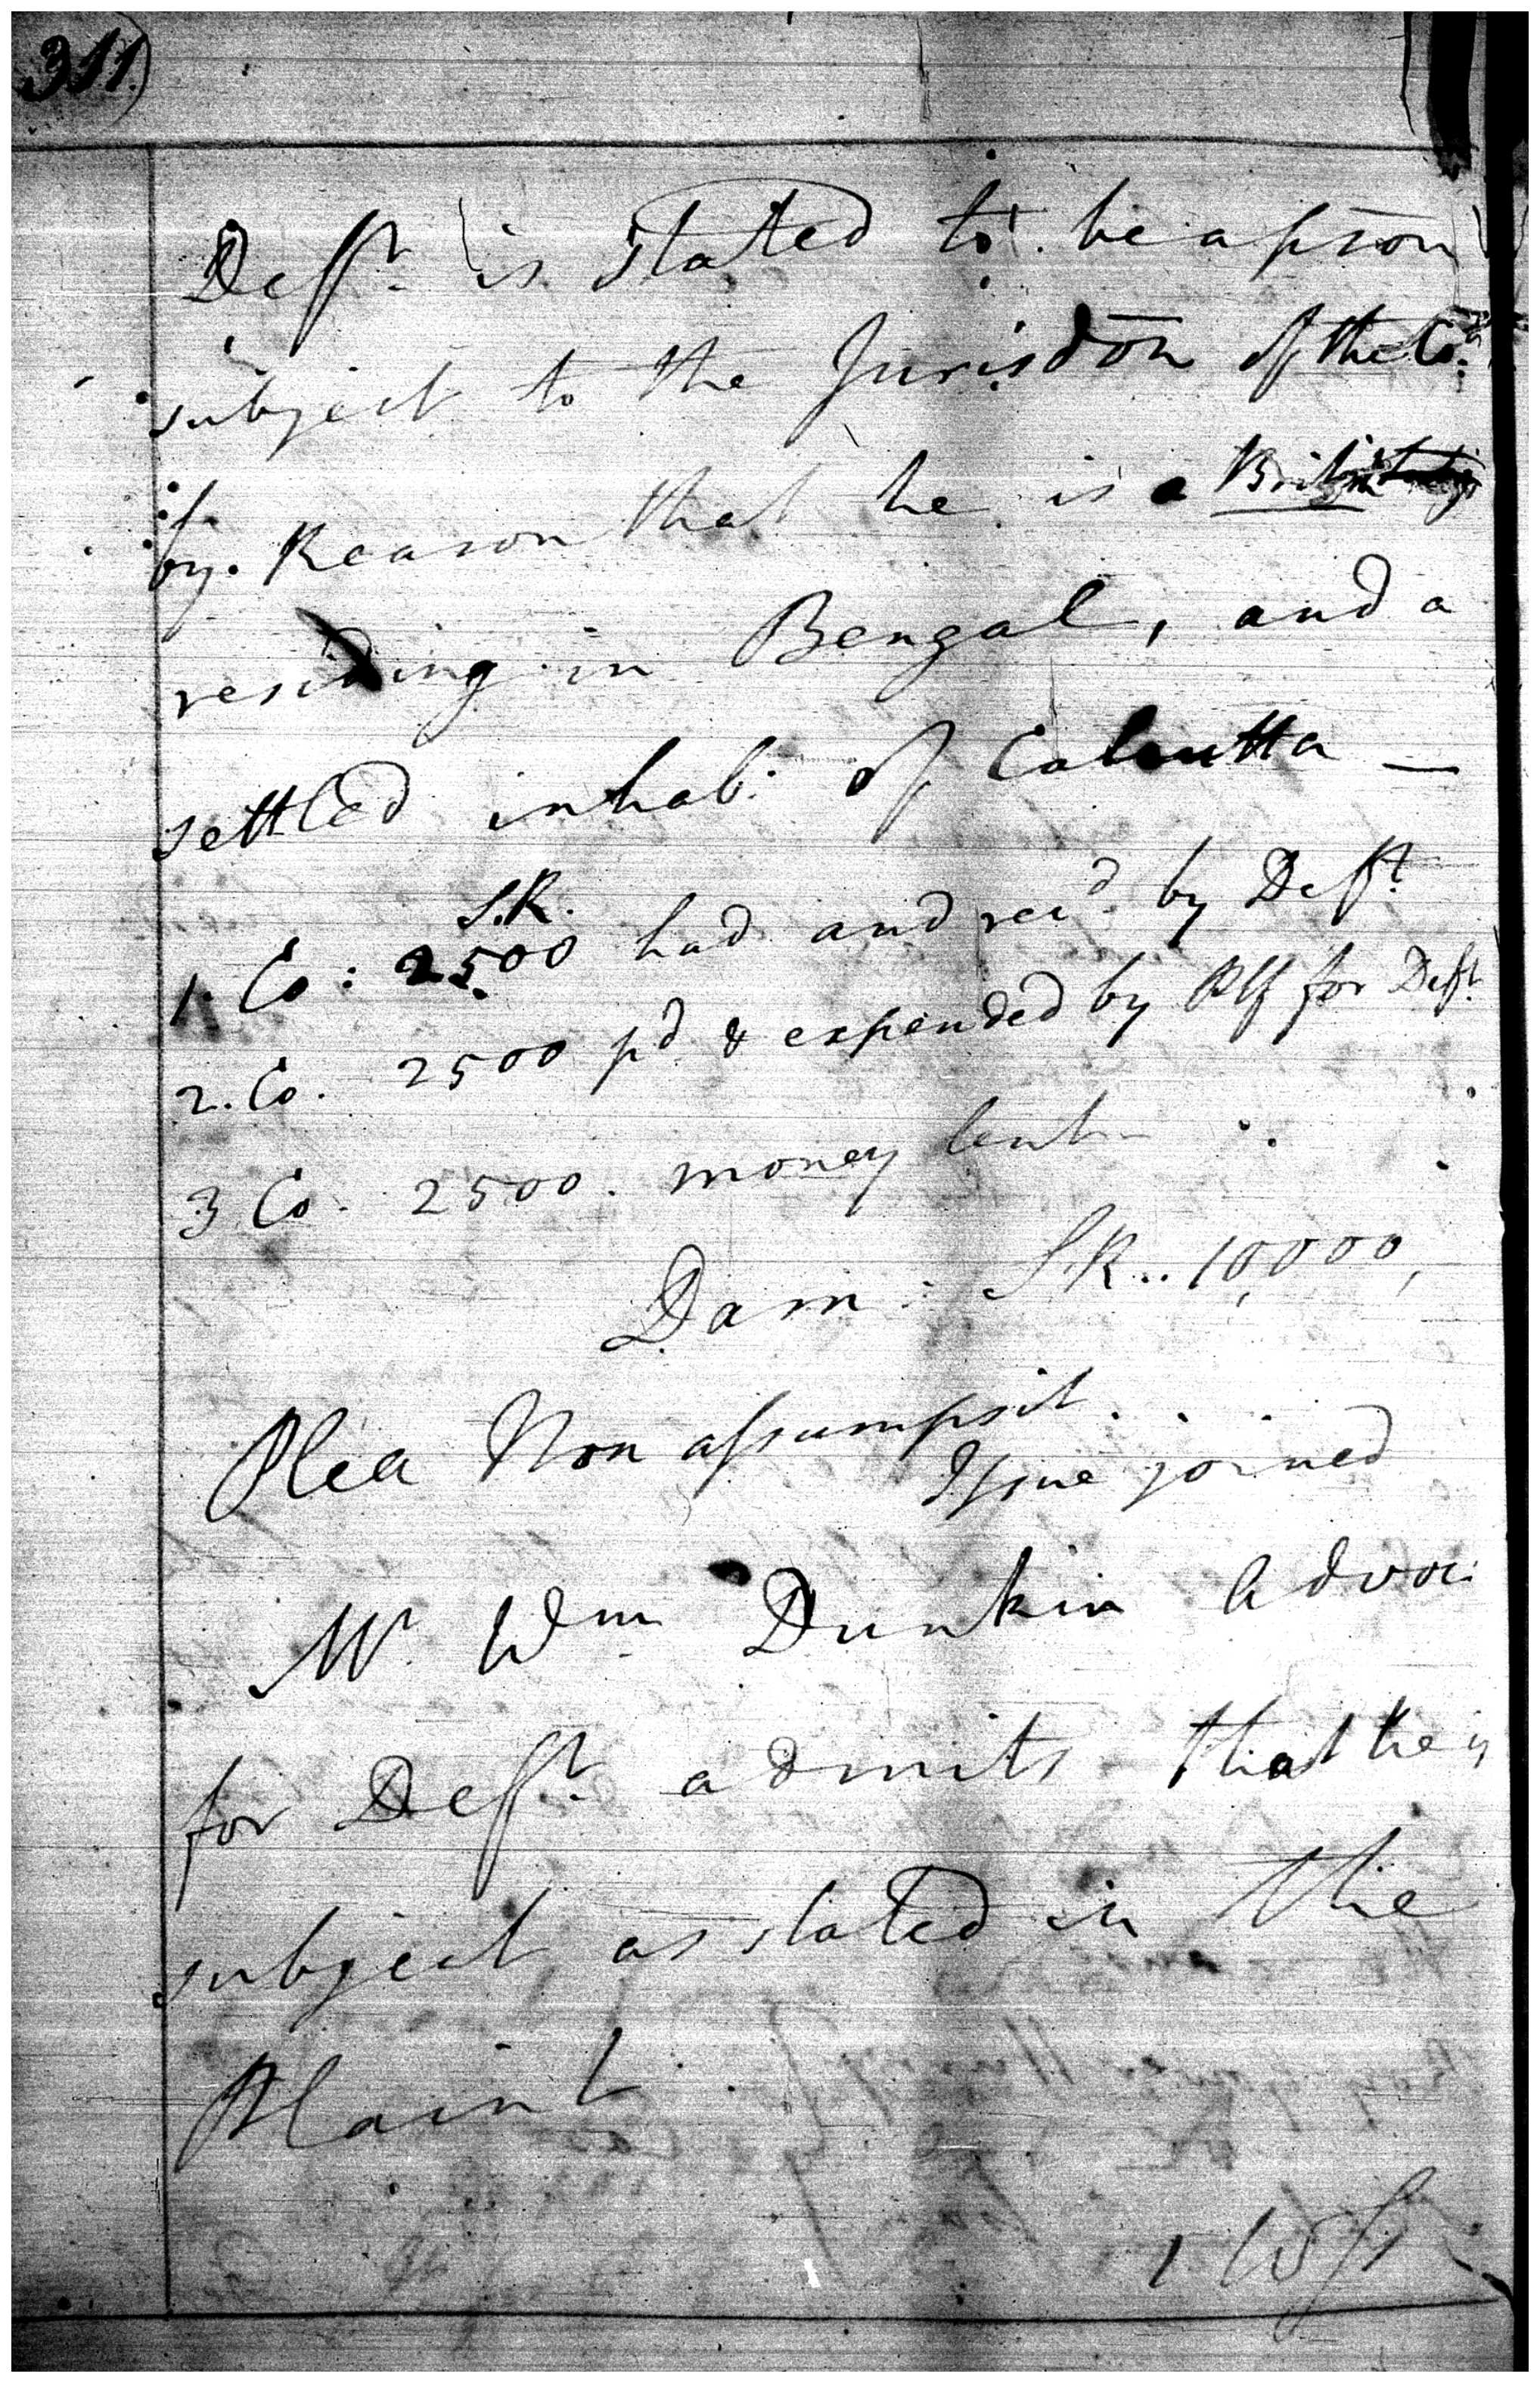 311.)
Defft. is stated to be a pson
subject to the Jurisdon of the Cot.
by Reason that he is a British
residing in Bengal, and a
settled inhab: of Calcutta —
S.R.
1. Co: 2500 had and recd. by Deft.
2. Co. 2500 pd. & expended by Plf for Deft.
3 Co. 2500. money lent
Dam: S.R.. 10,000,
Plea Non assumpsit.
Issue joined
Mr. Wm. Dunkin Advoc:
for Defft. admits that he is
subject as stated in the
Plaint.
1 Wss